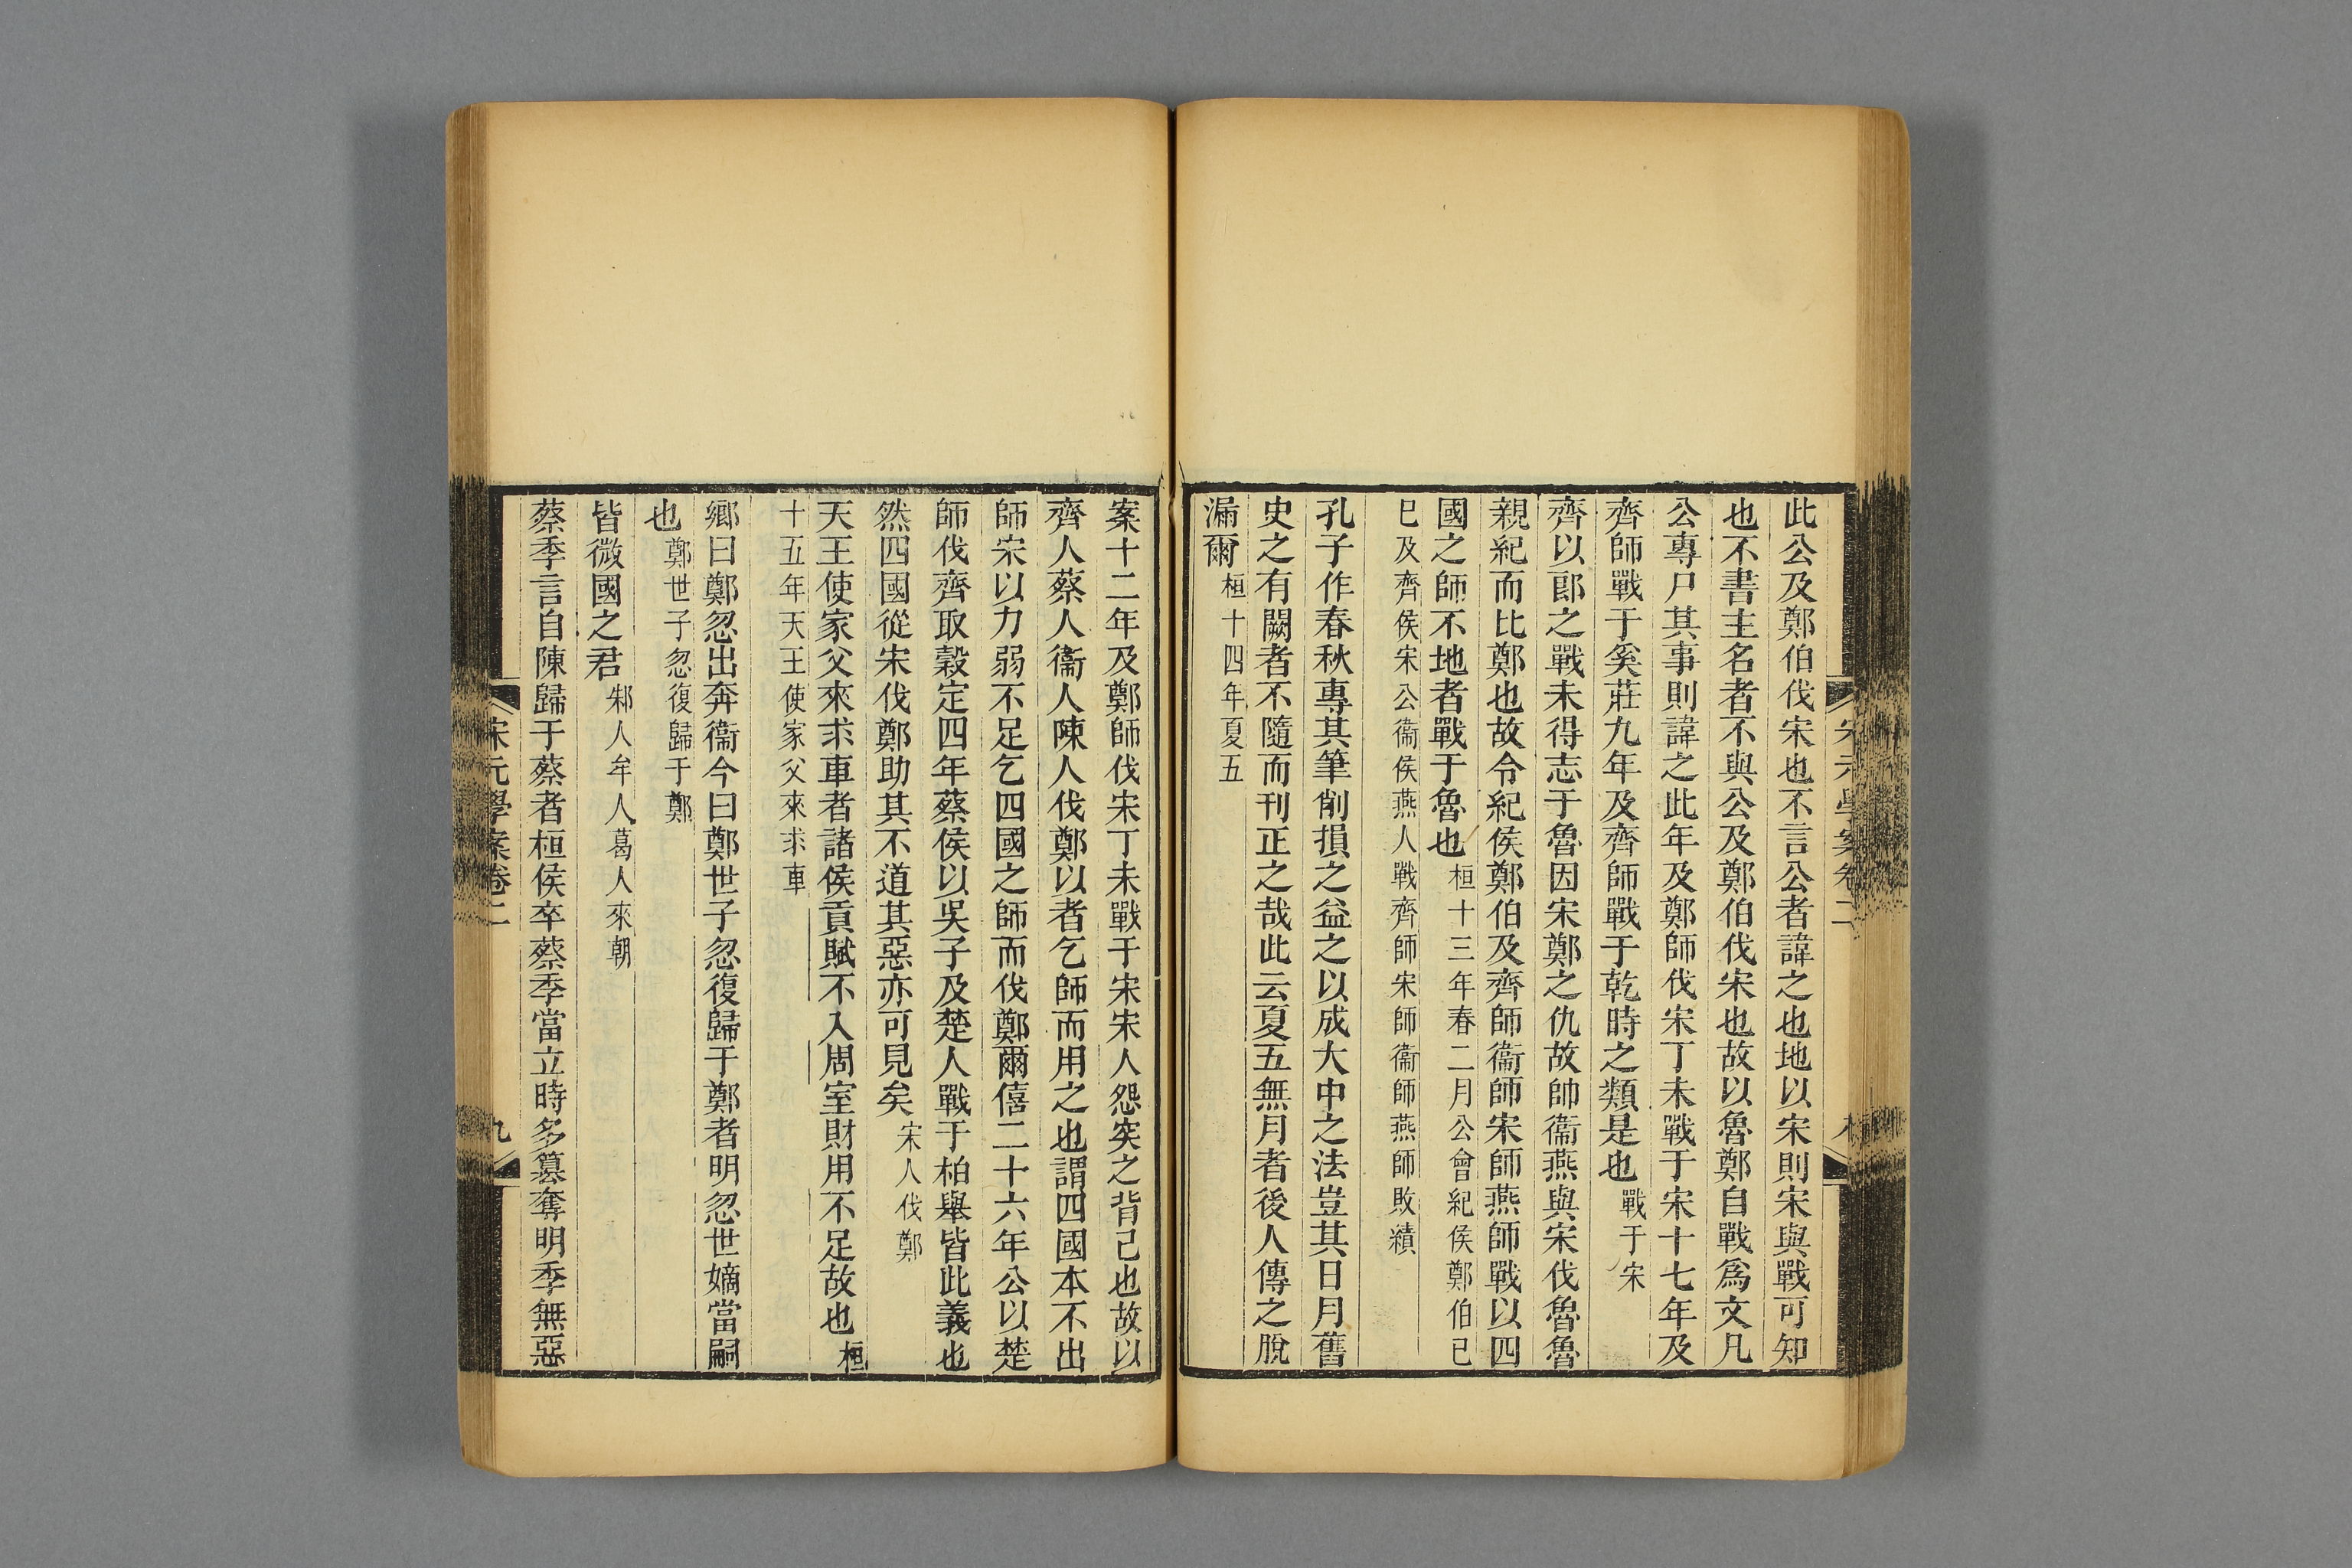 此公及鄭伯伐宋也不言公者諱之也地以宋則宋與戰可知
也不書主名者不與公及鄭伯伐宋也故以魯鄭自戰爲文凡
公專尸其事則諱之此年及鄭師伐宋丁未戰于宋十七年及
齊師戰于奚莊九年及齊師戰于乾時之類是也戰于宋
齊以郎之戰未得志于魯因宋鄭之仇故帥衞燕與宋伐魯魯
親紀而比鄭也故令紀侯鄭伯及齊師衞師宋師燕師戰以四
國之師不地者戰于魯也桓十三年春二月公會紀侯鄭伯已
巳及齊侯宋公衞侯燕人戰齊師宋師衞師燕師敗績
孔子作春秋專其筆削損之益之以成大中之法豈其日月舊
史之有闕者不隨而刊正之哉此云夏五無月者後人傳之脫
漏爾桓十四年夏五
案十二年及鄭師伐宋丁未戰于宋宋人怨突之背己也故以
齊人蔡人衞人陳人伐鄭以者乞師而用之也謂四國本不出
師宋以力弱不足乞四國之師而伐鄭爾僖二十六年公以楚
師伐齊取穀定四年蔡侯以吳子及楚人戰于柏舉皆此義也
然四國從宋伐鄭助其不道其惡亦可見矣宋人伐鄭
天王使家父來求車者諸侯貢賦不入周室財用不足故也桓
十五年天王使家父來求車
鄉曰鄭忽出奔衞今曰鄭世子忽復歸于鄭者明忽世嫡當嗣
也鄭世子忽復歸于鄭
皆微國之君邾人牟人葛人來朝
蔡季言自陳歸于蔡者桓侯卒蔡季當立時多篡奪明季無惡
宋元學案卷二
九